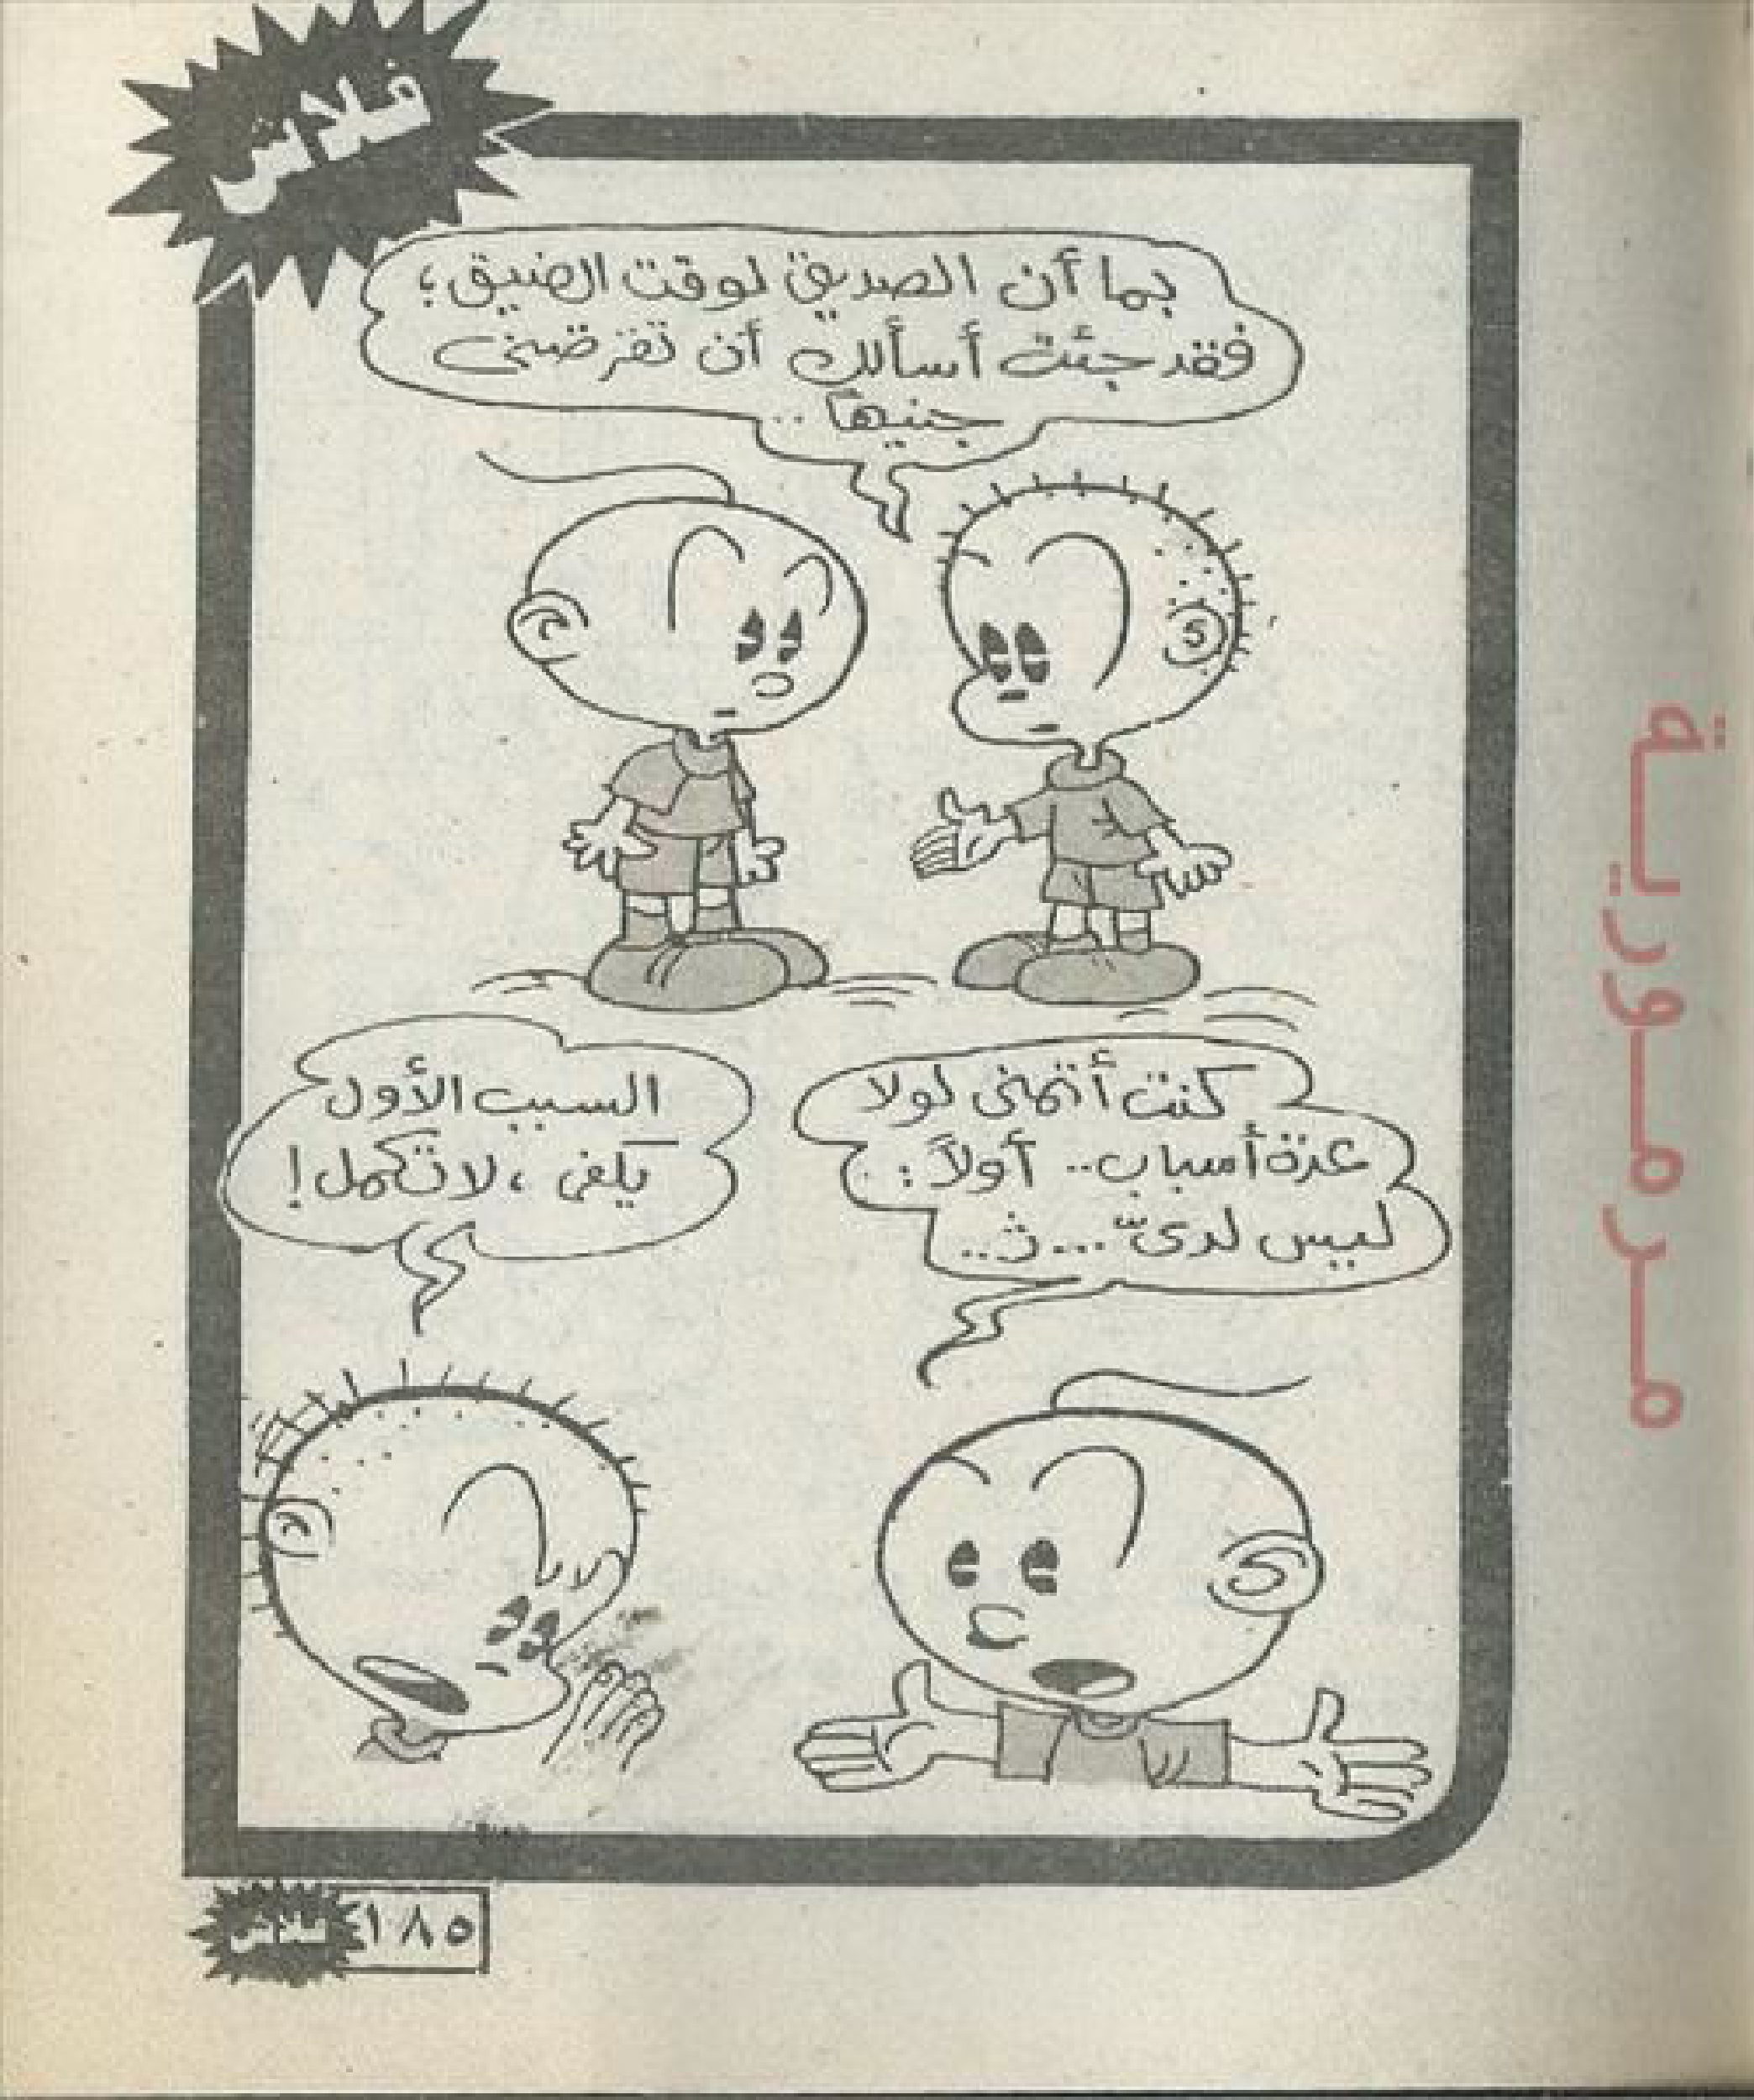 فلاش
بما أن الصديق لوقت الضيق؛
فقد جئت أسألك أن تقرضنى
جنيهاً ..
كنت أتمنى لولا
عدة أسباب.. أولاً :
ليس لدىّ ... ث..
السبب الأول
يكفى ، لا تكمل !
١٨٥
فلاش
مرمورية